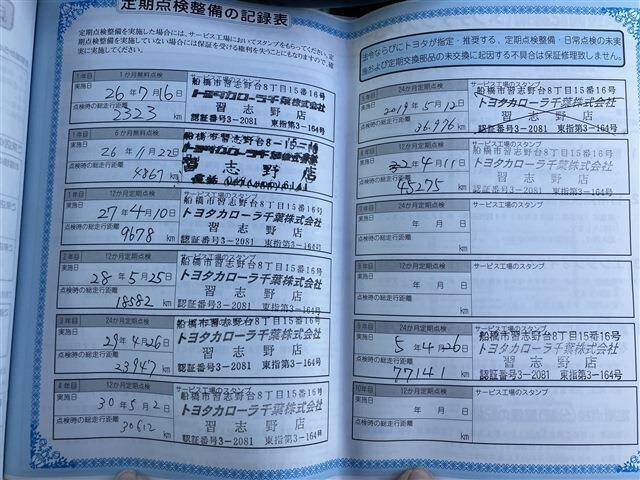 定期点検整備の記録表
定期点検整備を実施した場合には、サービス工場においてスタンプをもらってください。定
期点検整備を実施していない場合には保証を受ける権利を失うことにもなりますので、確
実に実施してください。
1年目 1か月無料点検
実施日 26年7月16日
点検時の総走行距離
2323 km
船橋市習志野台8丁目15番16号
トヨタカローラ千葉株式会社
習志野店
認証番号3-2081 東指第3-164号
1年目 6か月無料点検
実施日 26年11月22日
点検時の総走行距離
4867 km
船橋市習志野台8-15-16
トヨタカローラ千葉株式会社
習志野店
12か月定期点検
サービス工場のスタンプ
実施日 27年4月10日
点検時の総走行距離
9678 km
船橋市習志野台8丁目15番16号
トヨタカローラ千葉株式会社
習志野店
認証番号3-2081 東指第3-164号
12か月定期点検
実施日 28年5月25日
点検時の総走行距離
18582 km
船橋市習志野台8丁目15番16号
トヨタカローラ千葉株式会社
習志野店
認証番号3-2081 東指第3-164号
3年目 24か月定期点検
実施日 29年4月26日
点検時の総走行距離
23947 km
船橋市習志野台8丁目15番16号
トヨタカローラ千葉株式会社
習志野店
認証番号3-2081 東指第3-164号
4年目 12か月定期点検
サービス工場のスタンプ
実施日 30年5月2日
点検時の総走行距離
30612 km
船橋市習志野台8丁目15番16号
トヨタカローラ千葉株式会社
習志野店
認証番号3-2081 東指第3-164号
法令ならびにトヨタが指定・推奨する、定期点検整備・日常点検の未実
施および定期交換部品の未交換に起因する不具合は保証修理致しません。
24か月定期点検
サービス工場のスタンプ
実施日 2019年5月12日
点検時の総走行距離
36.976 km
船橋市習志野台8丁目15番16号
トヨタカローラ千葉株式会社
習志野店
認証番号3-2081 東指第3-164号
12か月定期点検
サービス工場のスタンプ
実施日 年4月11日
点検時の総走行距離
45275 km
船橋市習志野台8丁目15番16号
トヨタカローラ千葉株式会社
習志野店
認証番号3-2081 東指第3-164号
24か月定期点検
サービス工場のスタンプ
実施日 年 月 日
点検時の総走行距離
km
12か月定期点検
サービス工場のスタンプ
実施日 年 月 日
点検時の総走行距離
km
24か月定期点検
サービス工場のスタンプ
実施日 5年4月26日
点検時の総走行距離
77141 km
船橋市習志野台8丁目15番16号
トヨタカローラ千葉株式会社
習志野店
認証番号3-2081 東指第3-164号
10年目 12か月定期点検
サービス工場のスタンプ
実施日 年 月 日
点検時の総走行距離
km